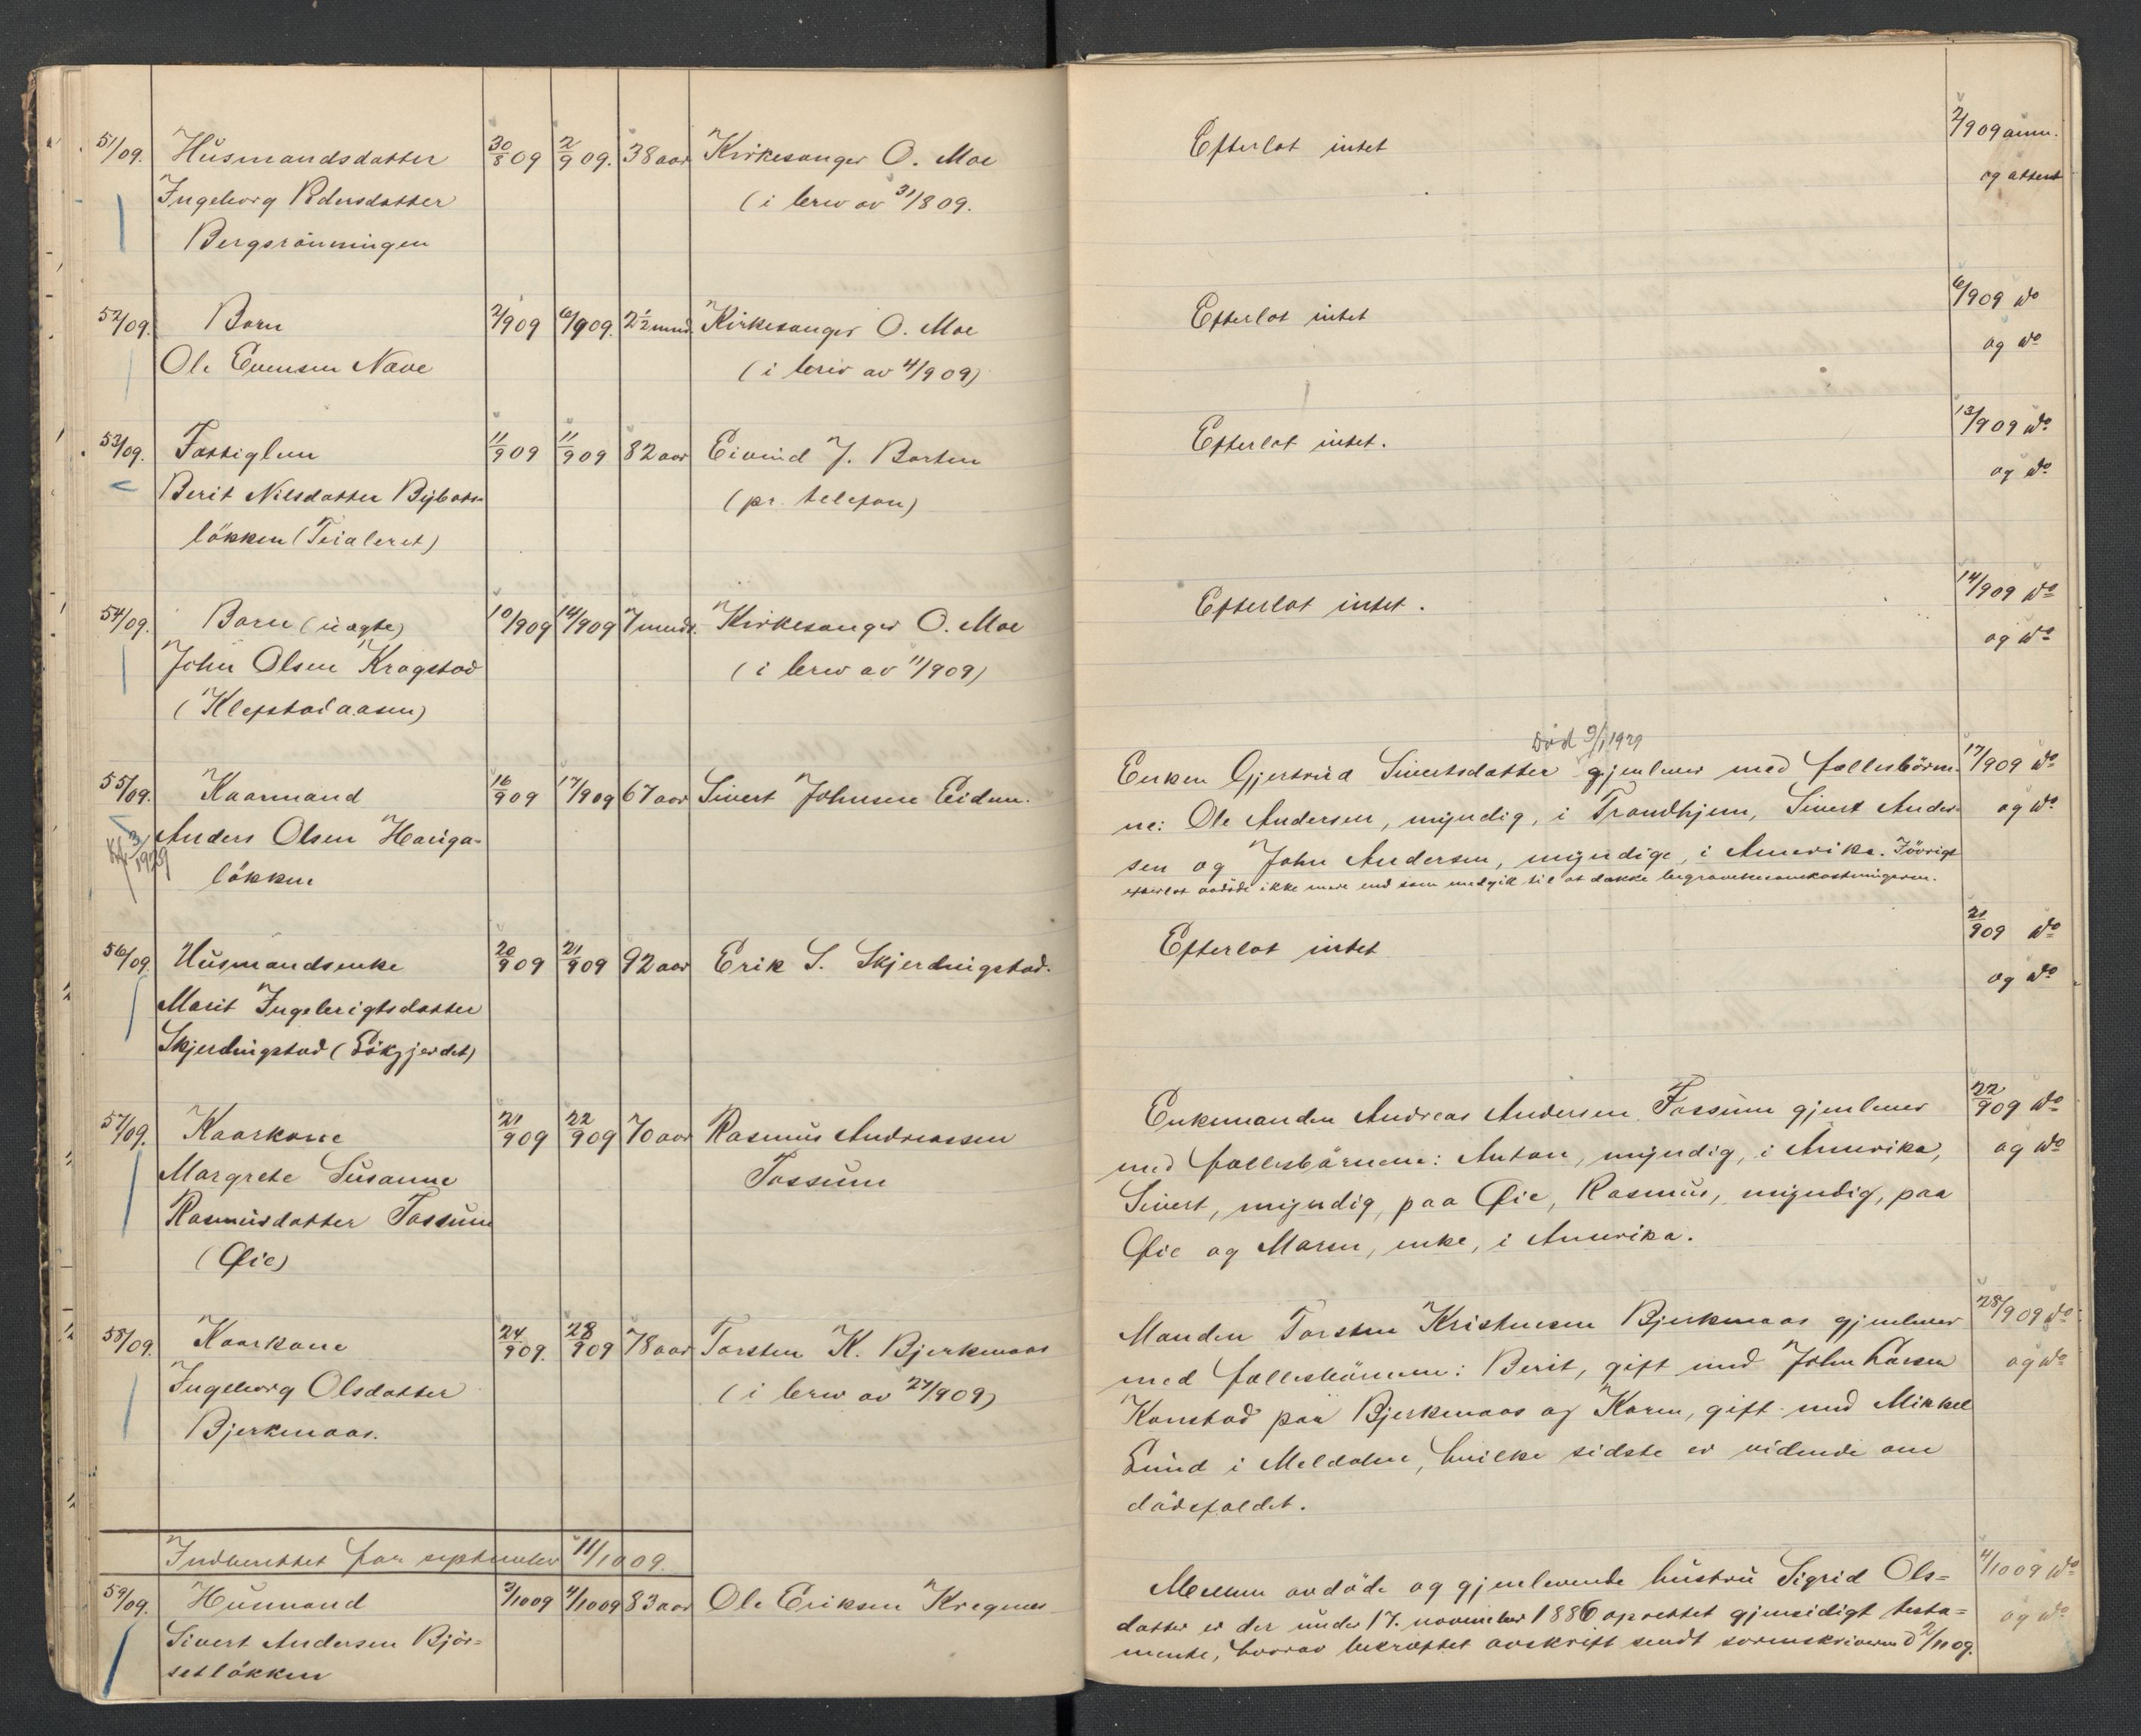 51/09. Husmandsdatter 30/8 09 2/9 09. 38 aar Kirkesanger O. Moe Efterlot intet 2/9 09 anm.
Ingeborg Pedersdatter (i brev av 31/8 09. og attest
Bergsrönningen
52/09. Barn 2/9 09 6/9 09. 2½ mnd. Kirkesanger O. Moe Efterlot intet 6/9 09 do
Ole Evensen Nave (i brev av 4/9 09) og do
53/09. Fattiglem 11/9 09 11/9 09 82 aar Eivind J. Borten Efterlot intet. 13/9 09 do
Berit Nilsdatter (pr. telefon) og do
lökken (Teialeret)
54/09. Barn (uægte) 10/9 09 14/9 09 7 mndr. Kirkesanger O. Moe Efterlot intet. 14/9 09 do
John Olsen Kragstad (i brev av 11/9 09) og do
(Klefstadaasen)
Död 9/1 1929
55/09. Kaarmand 16/9 09 17/9 09 67 aar Sivert Johnsen Eidem. Enken Gjertrud Sivertsdatter gjenlever med fællesbörne- 17/9 09 do
Anders Olsen Hauga- ne: Ole Andersen, myndig, i Trondhjem, Sivert Ander- og do
3/1929
lökken sen og John Andersen, myndige, i Amerika. Iövrigt
efterlot avdöde ikke mere end som medgik til at dække begravelsesomkostningerne.
56/09. Husmandsenke 20/9 09 21/9 09 92 aar Erik S. Skjerdingstad. Efterlot intet 21/9 09 do
Marit Ingebrigtsdatter og do
Skjerdingstad (Lökgjerdet)
57/09. Kaarkone 21/9 09 22/9 09 70 aar Rasmus Andreassen Enkemanden Andreas Andersen Fossum gjenlever 22/9 09 do
Margrete Susanne Fossum med fællesbörnene: Anton, myndig, i Amerika, og do
Rasmusdatter Fossum Sivert, myndig, paa Øie, Rasmus, myndig, paa
(Øie) Øie og Maren, enke, i Amerika.
58/09. Kaarkone 24/9 09. 28/9 09 78 aar Torsten K. Bjerkmaas Manden Torsten Kristensen Bjerkmaas gjenlever 28/9 09 do
Ingeborg Olsdatter (i brev av 27/9 09) med fællesbörnene: Berit, gift med John Larsen og do
Bjerkmaas. Konstad paa Bjerkmaas og Karen, gift med Mikkel
Lund i Meldalen, hvilke sidste er vidende om
dödsfaldet.
Indberettet for september 11/10 09.
59/09. Husmand 3/10 09 4/10 09 83 aar Ole Eriksen Kregnes Mellem avdöde og gjenlevende hustru Sigrid Ols- 4/10 09 do
Sivert Andersen Björ- datter er der under 17. november 1886 oprettet gjensidigt testa- og do
setlökken mente, hvorav bekræftet avskrift sendt sorenskriveren d 2/11 09.